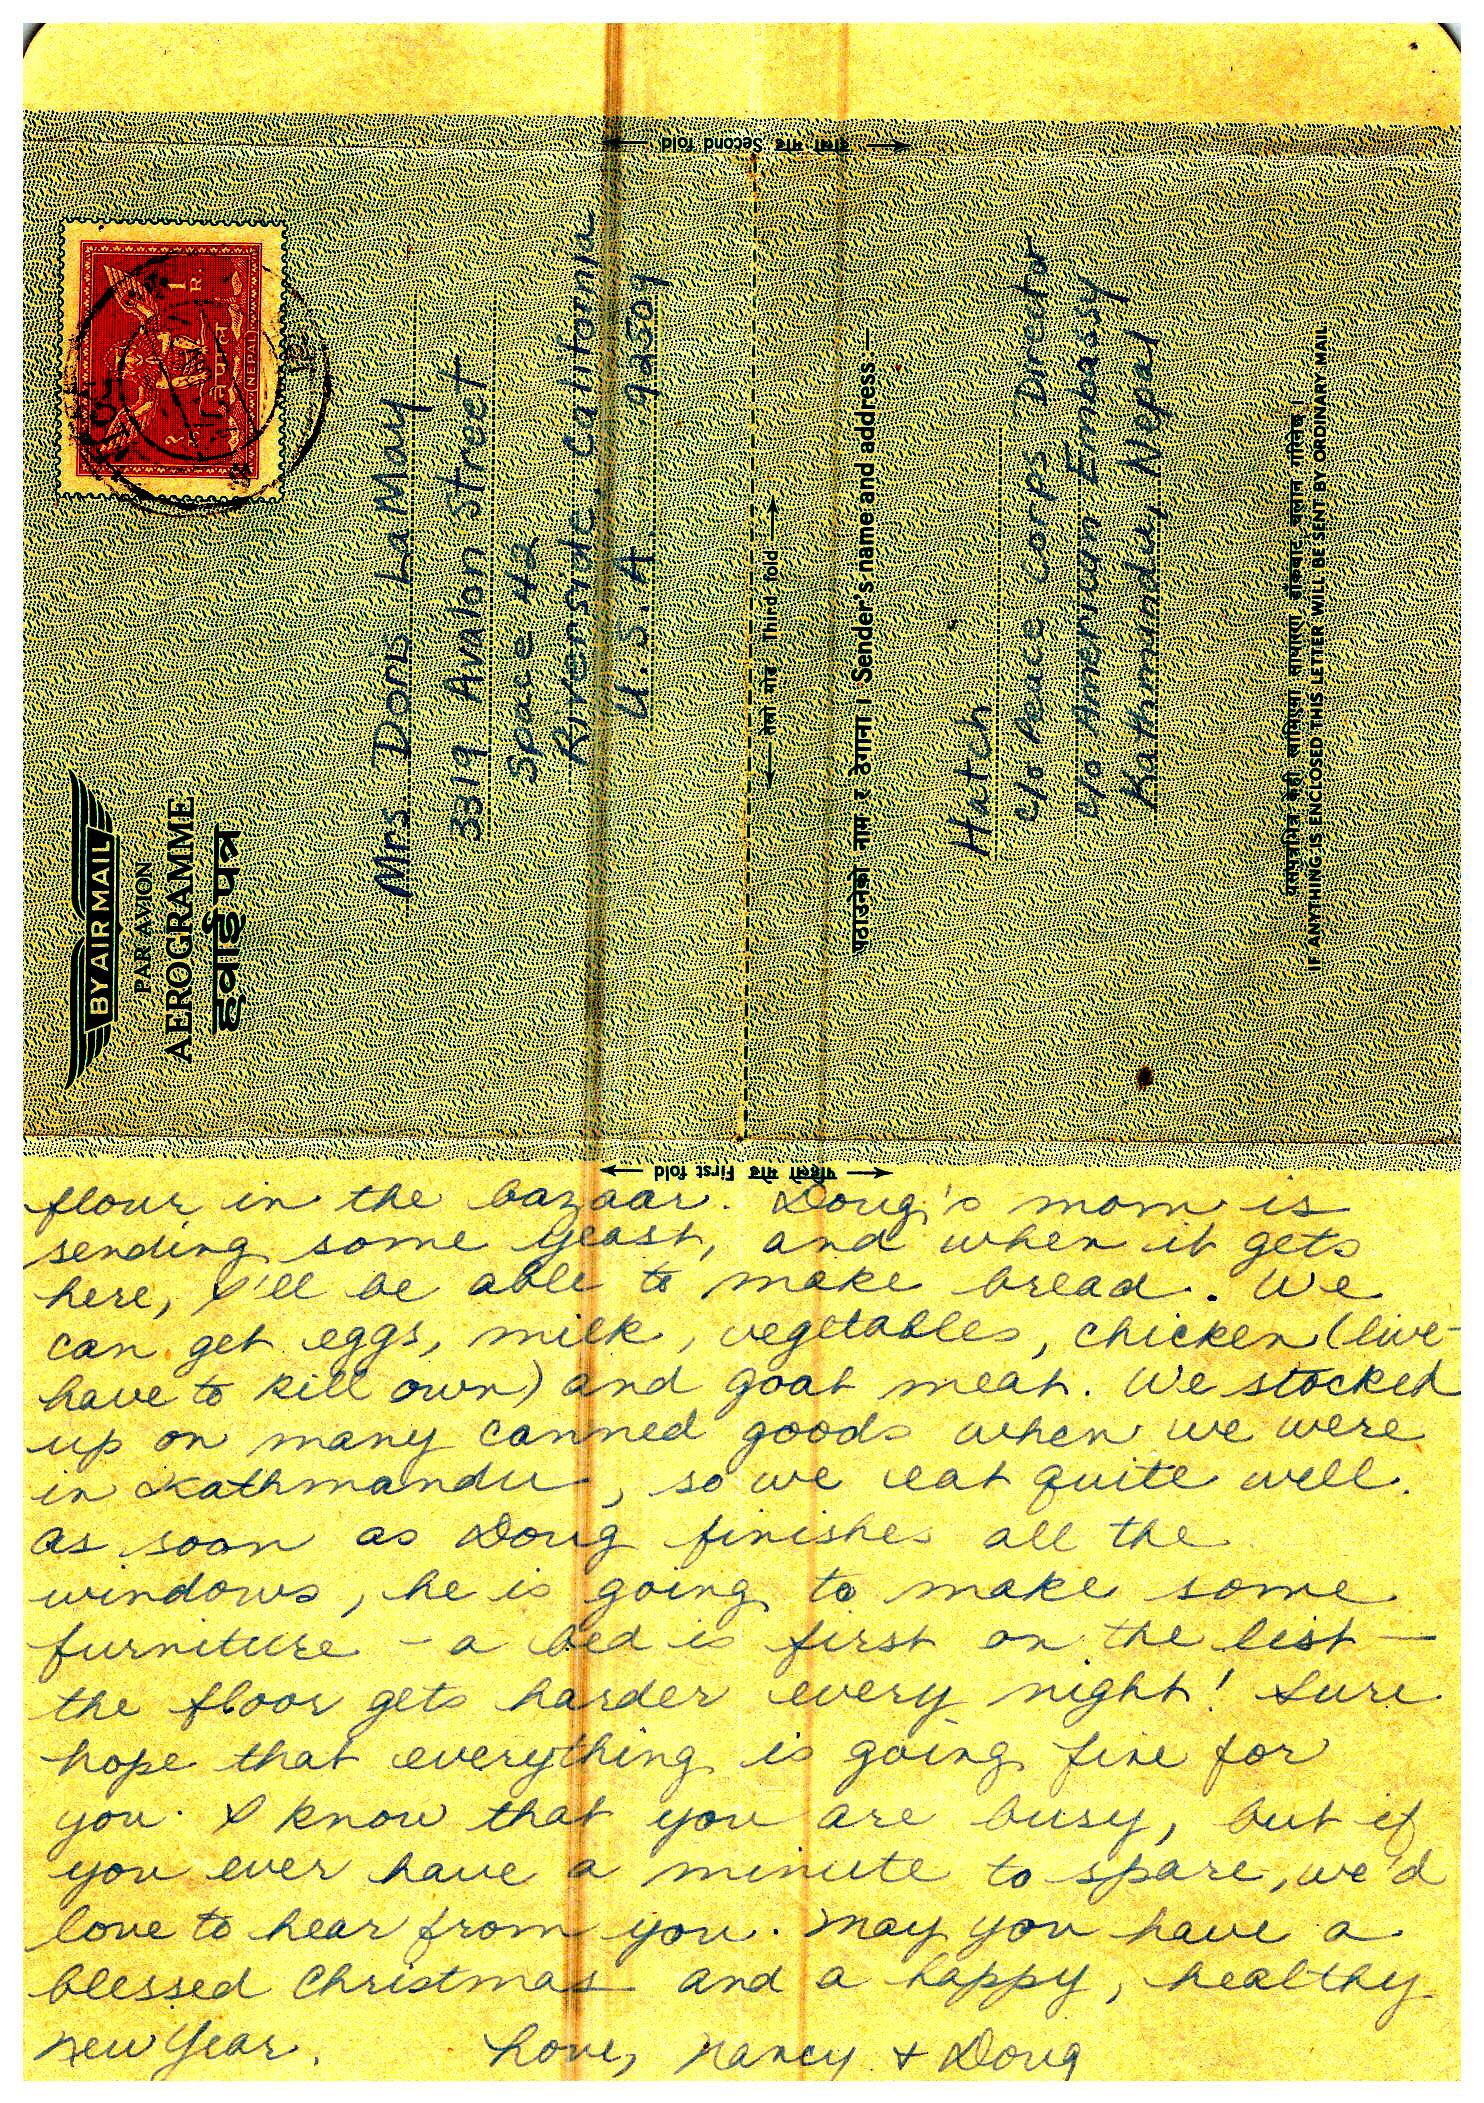 दोस्रो मोड Second fold
1 R.
नेपाल
(NEPAL)
BY AIR MAIL
PAR AVION
AEROGRAMME
हवाई पत्र
Mrs Doris LaMay
3319 Avalon Street
Space 42
Riverside, California
U.S.A 92509
तेस्रो मोड Third fold
पठाउनेको नाम र ठेगाना । Sender's name and address:—
Hatch
c/o Peace Corps Director
c/o American Embassy
Kathmandu, Nepal
यसपत्रभित्र केही लागिएमा साधारण डाँकबाट चलान गरिनेछ ।
IF ANYTHING IS ENCLOSED THIS LETTER WILL BE SENT BY ORDINARY MAIL
पहिलो मोड First fold
flour in the bazaar. Doug's mom is
sending some yeast, and when it gets
here, I'll be able to make bread. We
can get eggs, milk, vegetables, chicken (live -
have to kill own) and goat meat. We stocked
up on many canned goods when we were
in Kathmandu, so we eat quite well.
As soon as Doug finishes all the
windows, he is going to make some
furniture - a bed is first on the list —
the floor gets harder every night! Sure
hope that everything is going fine for
you. I know that you are busy, but if
you ever have a minute to spare, we'd
love to hear from you. May you have a
blessed Christmas and a happy, healthy
New Year. Love, Nancy + Doug